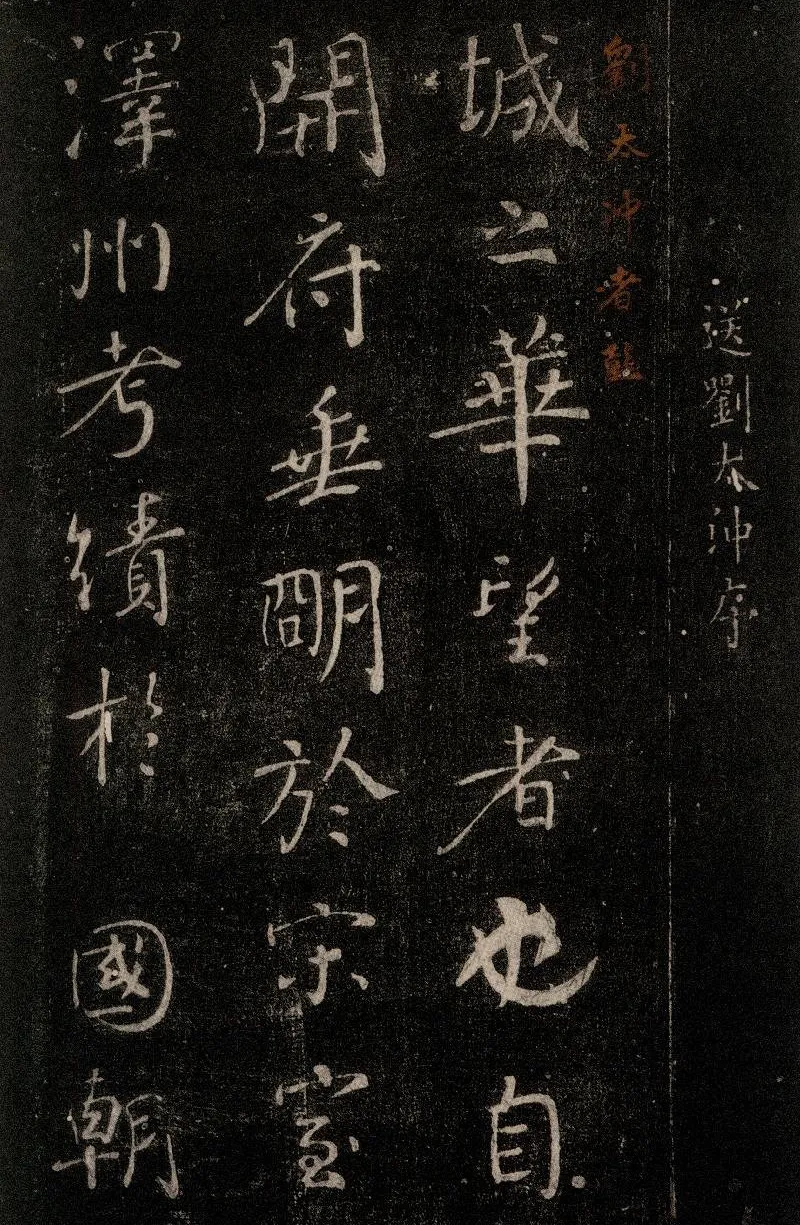 送劉太沖序
劉太沖者彭
城之華望者也自
開府垂明於宋室
澤州考績於國朝